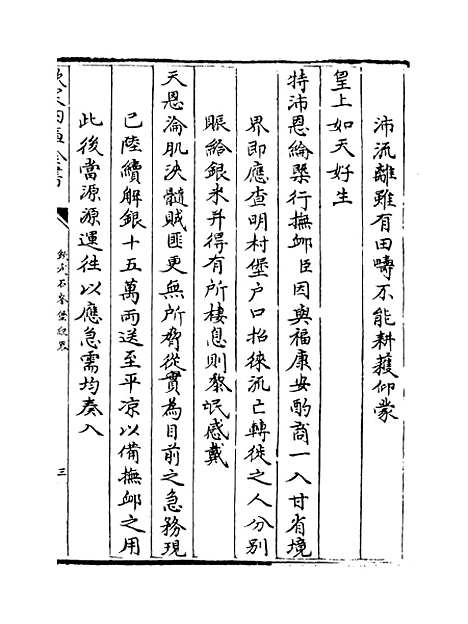 沛流離雖有田疇不能耕穫仰蒙
皇上如天好生
特沛恩綸槩行撫卹臣因與福康安酌商一入甘省境
界即應查明村堡户口招徠流亡轉徙之人分别
賑給銀米并得有所棲息則黎氓感戴
天恩淪肌浹髓賊匪更無所脅從實為目前之急務現
已陸續解銀十五萬兩送至平凉以備撫卹之用
此後當源源運往以應急需均奏入
欽定石峯堡紀畧
三